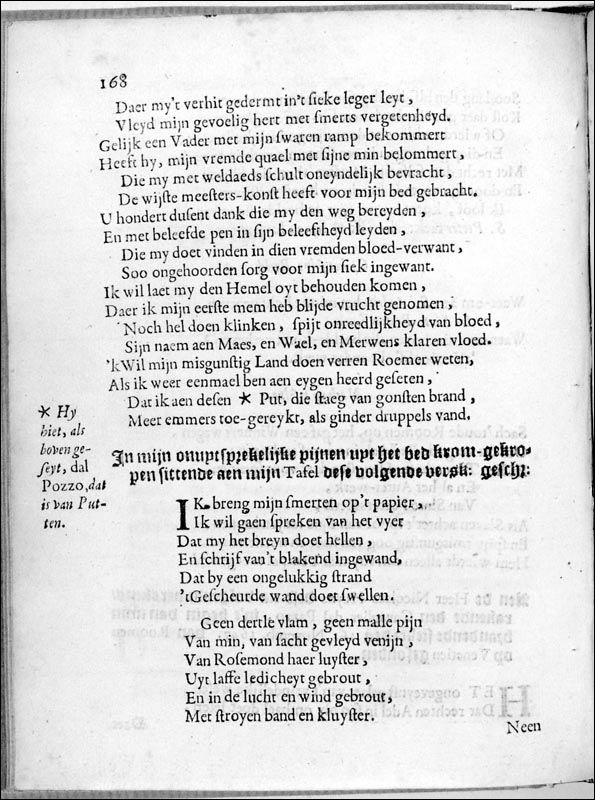 168
Daer my't verhit gedermt in't sieke leger leyt,
Vleyd mijn gevoelig hert met smerts vergetenheyd.
Gelijk een Vader met mijn swaren ramp bekommert
Heeft hy, mijn vremde quael met sijne min belommert,
Die my met weldaeds schult oneyndelijk bevracht,
De wijste meesters-konst heeft voor mijn bed gebracht.
U hondert dusent dank die my den weg bereyden,
En met beleefde pen in sijn beleeftheyd leyden,
Die my doet vinden in dien vremden bloed-verwant,
Soo ongehoorden sorg voor mijn siek ingewant.
Ik wil laet my den Hemel oyt behouden komen,
Daer ik mijn eerste mem heb blijde vrucht genomen,
Noch hel doen klinken, spijt onreedlijkheyd van bloed,
Sijn naem aen Maes, en Wael, en Merwens klaren vloed.
'k Wil mijn misgunstig Land doen verren Roemer weten,
Als ik weer eenmael ben aen eygen heerd geseten,
Dat ik aen desen * Put, die staeg van gonsten brand,
Meer emmers toe-gereykt, als ginder druppels vand.
* Hy
hiet, als
boven ge-
seyt, dal
Pozzo, dat
is van Put-
ten.
In mijn onuytsprekelijke pijnen uyt het bed krom-gekro-
pen sittende aen mijn Tafel dese volgende versk: geschr:
IK breng mijn smerten op't papier,
Ik wil gaen spreken van het vyer
Dat my het breyn doet hellen,
En schrijf van't blakend ingewand,
Dat by een ongelukkig strand
'tGescheurde wand doet swellen.
Geen dertle vlam, geen malle pijn
Van min, van sacht gevleyd venijn,
Van Rosemond haer luyster,
Uyt laffe ledicheyt gebrout,
En in de lucht en wind gebrout,
Met stroyen band en kluyster.
Neen